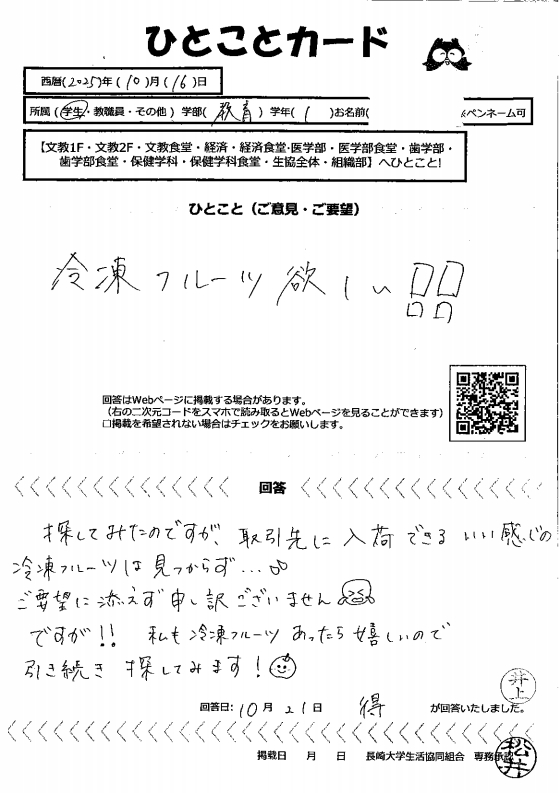 ひとことカード
西暦(2025)年(10)月(16)日
所属(学生・教職員・その他)学部(教育)学年(1)お名前(
ペンネーム可
【文教1F・文教2F・文教食堂・経済・経済食堂・医学部・医学部食堂・歯学部・
歯学部食堂・保健学科・保健学科食堂・生協全体・組織部】へひとこと!
ひとこと(ご意見・ご要望)
冷凍フルーツ欲しい!!
回答はWebページに掲載する場合があります。
(右の二次元コードをスマホで読み取るとWebページを見ることができます)
□掲載を希望されない場合はチェックをお願いします。
回答
探してみたのですが、取引先に入荷できるいい感じの
冷凍フルーツは見つからず…
ご要望に添えず申し訳ございません
ですが!! 私も冷凍フルーツあったら嬉しいので
引き続き探してみます!
回答日:10月21日 得 が回答いたしました。
井上
掲載日 月 日 長崎大学生活協同組合 専務承認
松井